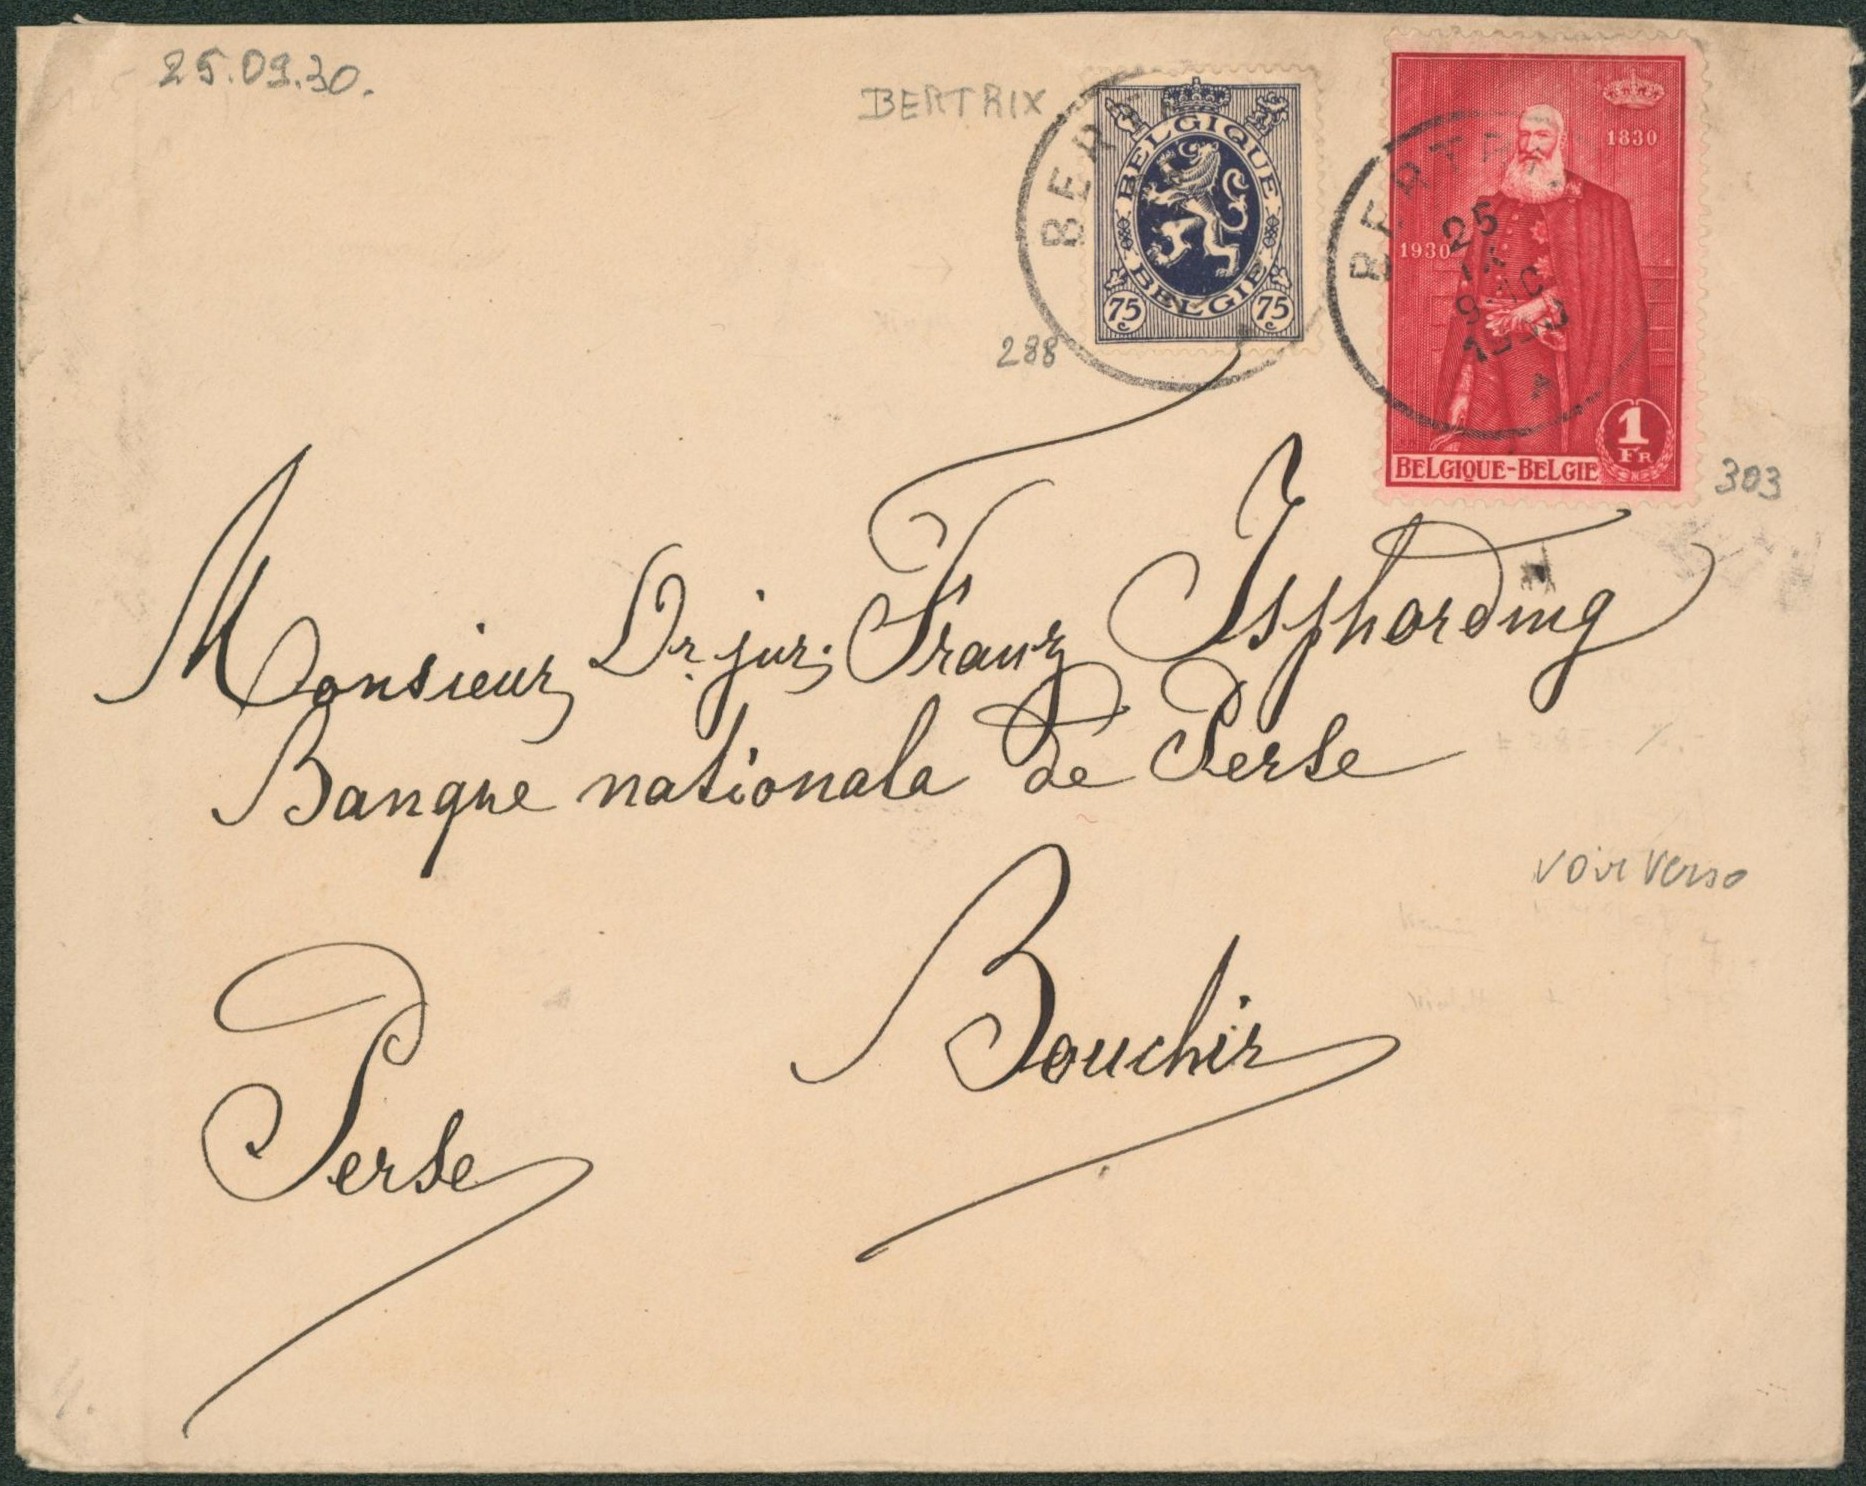 25.09.30.
BERTRIX
BERT
BELGIQUE
BELGIE
75c 75c
288
1830
1930
BERTR
25
IX
9-10
1930
1 FR
BELGIQUE-BELGIE
303
Monsieur Dr. jur. Franz Isphording
Banque nationala de Perse
voir verso
Bouchir
Perse